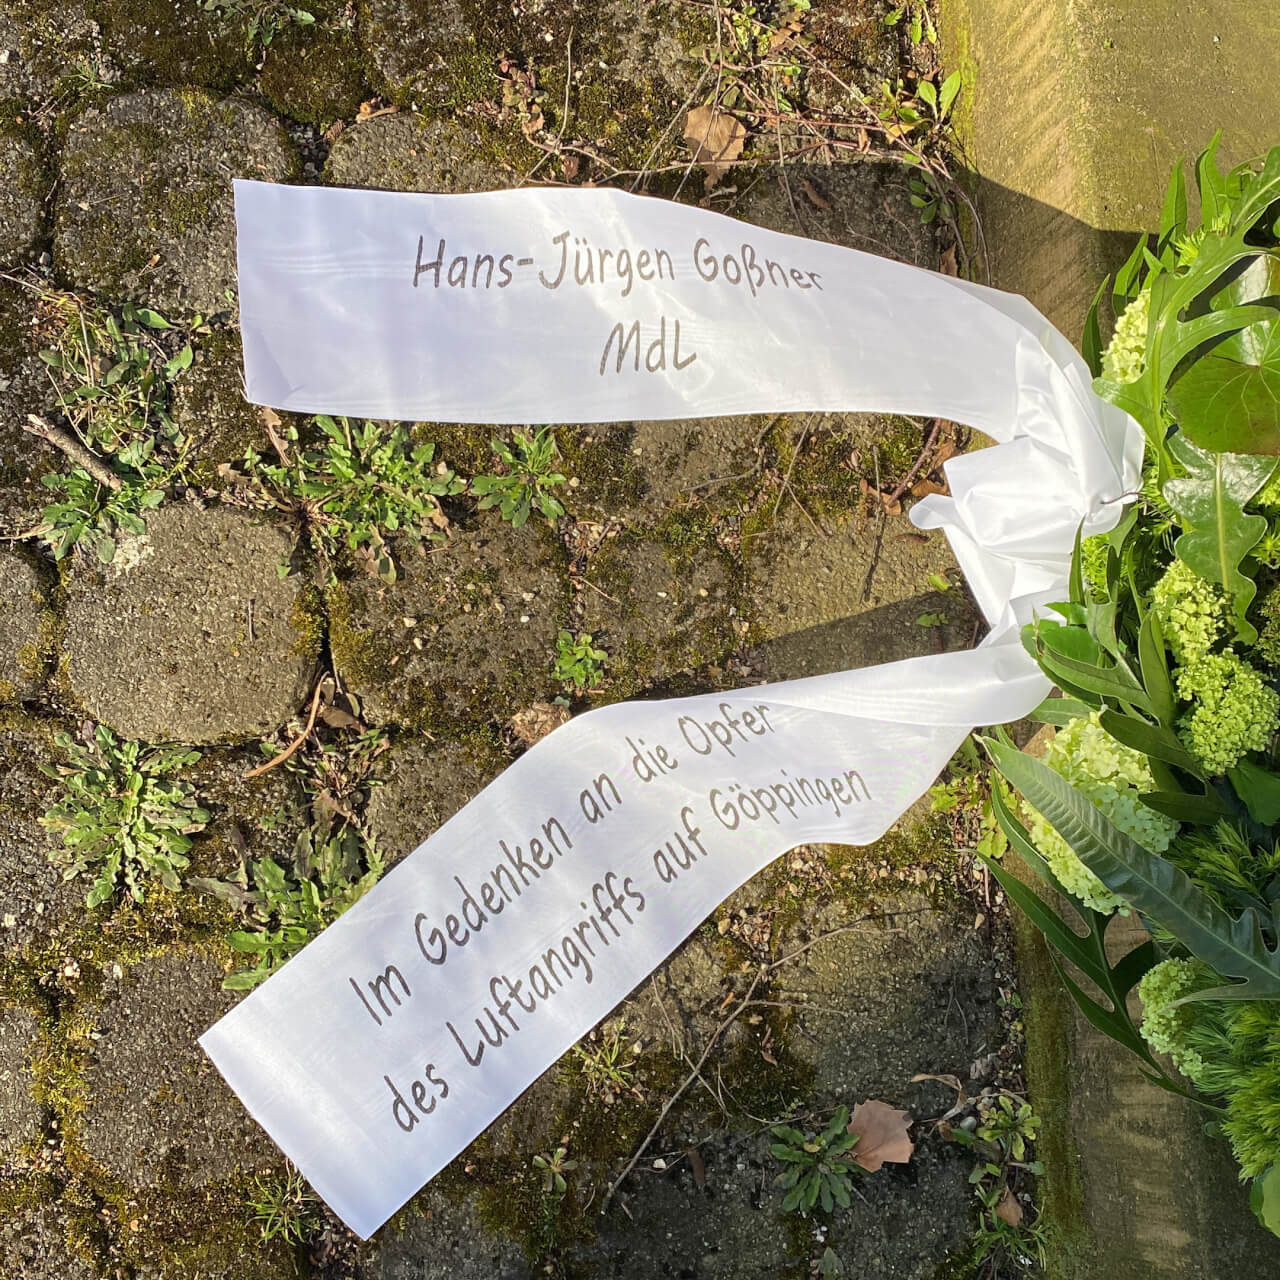 Hans-Jürgen Goßner
MdL
Im Gedenken an die Opfer
des Luftangriffs auf Göppingen